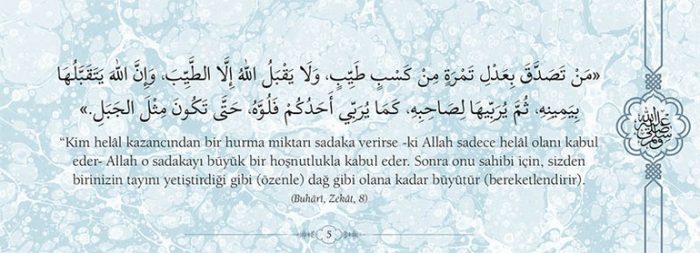 «مَنْ تَصَدَّقَ بِعَدْلِ تَمْرَةٍ مِنْ كَسْبٍ طَيِّبٍ، وَلَا يَقْبَلُ اللهُ إِلَّا الطَّيِّبَ، وَإِنَّ اللهَ يَتَقَبَّلُهَا
بِيَمِينِهِ، ثُمَّ يُرَبِّيهَا لِصَاحِبِهِ، كَمَا يُرَبِّي أَحَدُكُمْ فَلُوَّهُ، حَتَّى تَكُونَ مِثْلَ الْجَبَلِ.»
“Kim helâl kazancından bir hurma miktarı sadaka verirse -ki Allah sadece helâl olanı kabul
eder- Allah o sadakayı büyük bir hoşnutlukla kabul eder. Sonra onu sahibi için, sizden
birinizin tayını yetiştirdiği gibi (özenle) dağ gibi olana kadar büyütür (bereketlendirir).
(Buhârî, Zekât, 8)
5